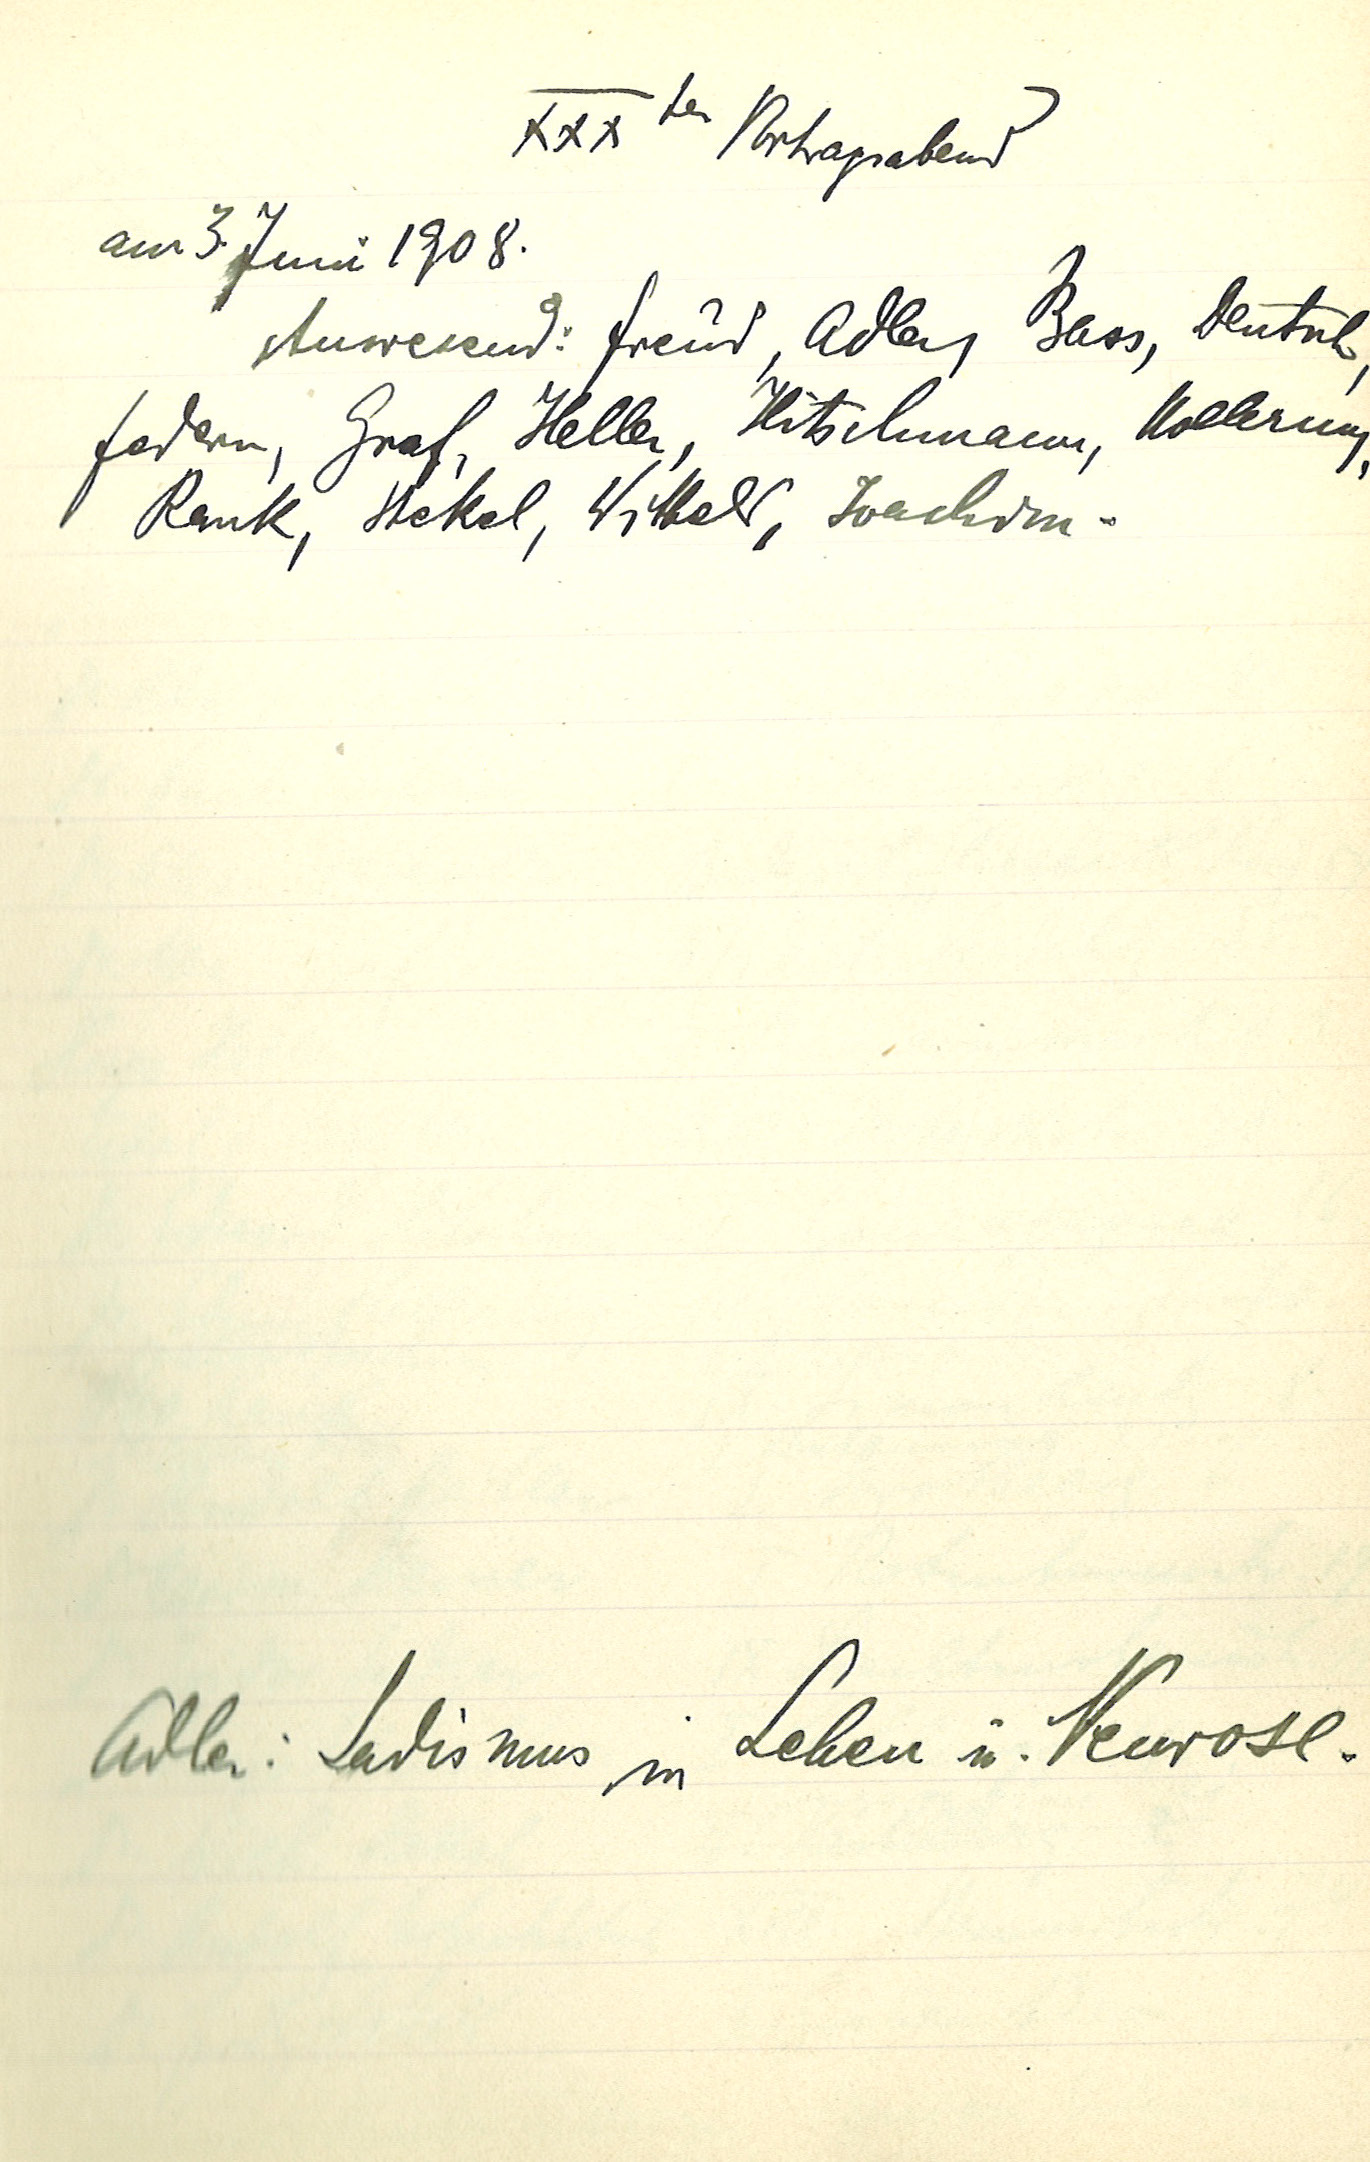 XXXter Vortragsabend
am 3. Juni 1908.
Anwesend: Freud, Adler, Bass, Deutsch,
Federn, Graf, Heller, Hitschmann, Hollerung,
Rank, Stekel, Wittels, Joachim.
Adler: Sadismus in Leben u. Neurose.